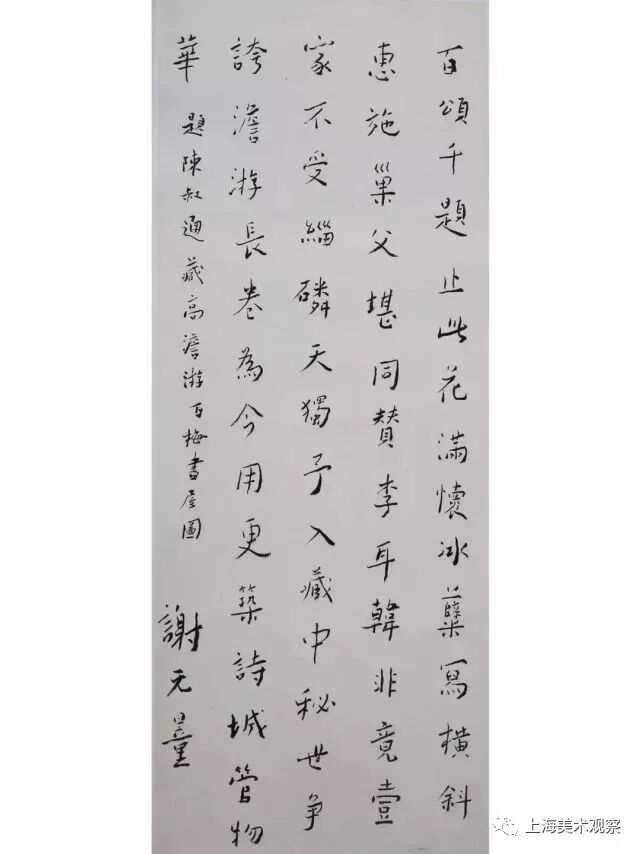 百頌千題止此花滿懷冰蘗寫橫斜
惠施巢父堪同贊李耳韓非竟壹
家不受緇磷天獨予入藏中秘世爭
誇澹游長卷為今用更築詩城管物
華 題陳叔通藏高澹游百梅書屋圖
謝无量
上海美术观察